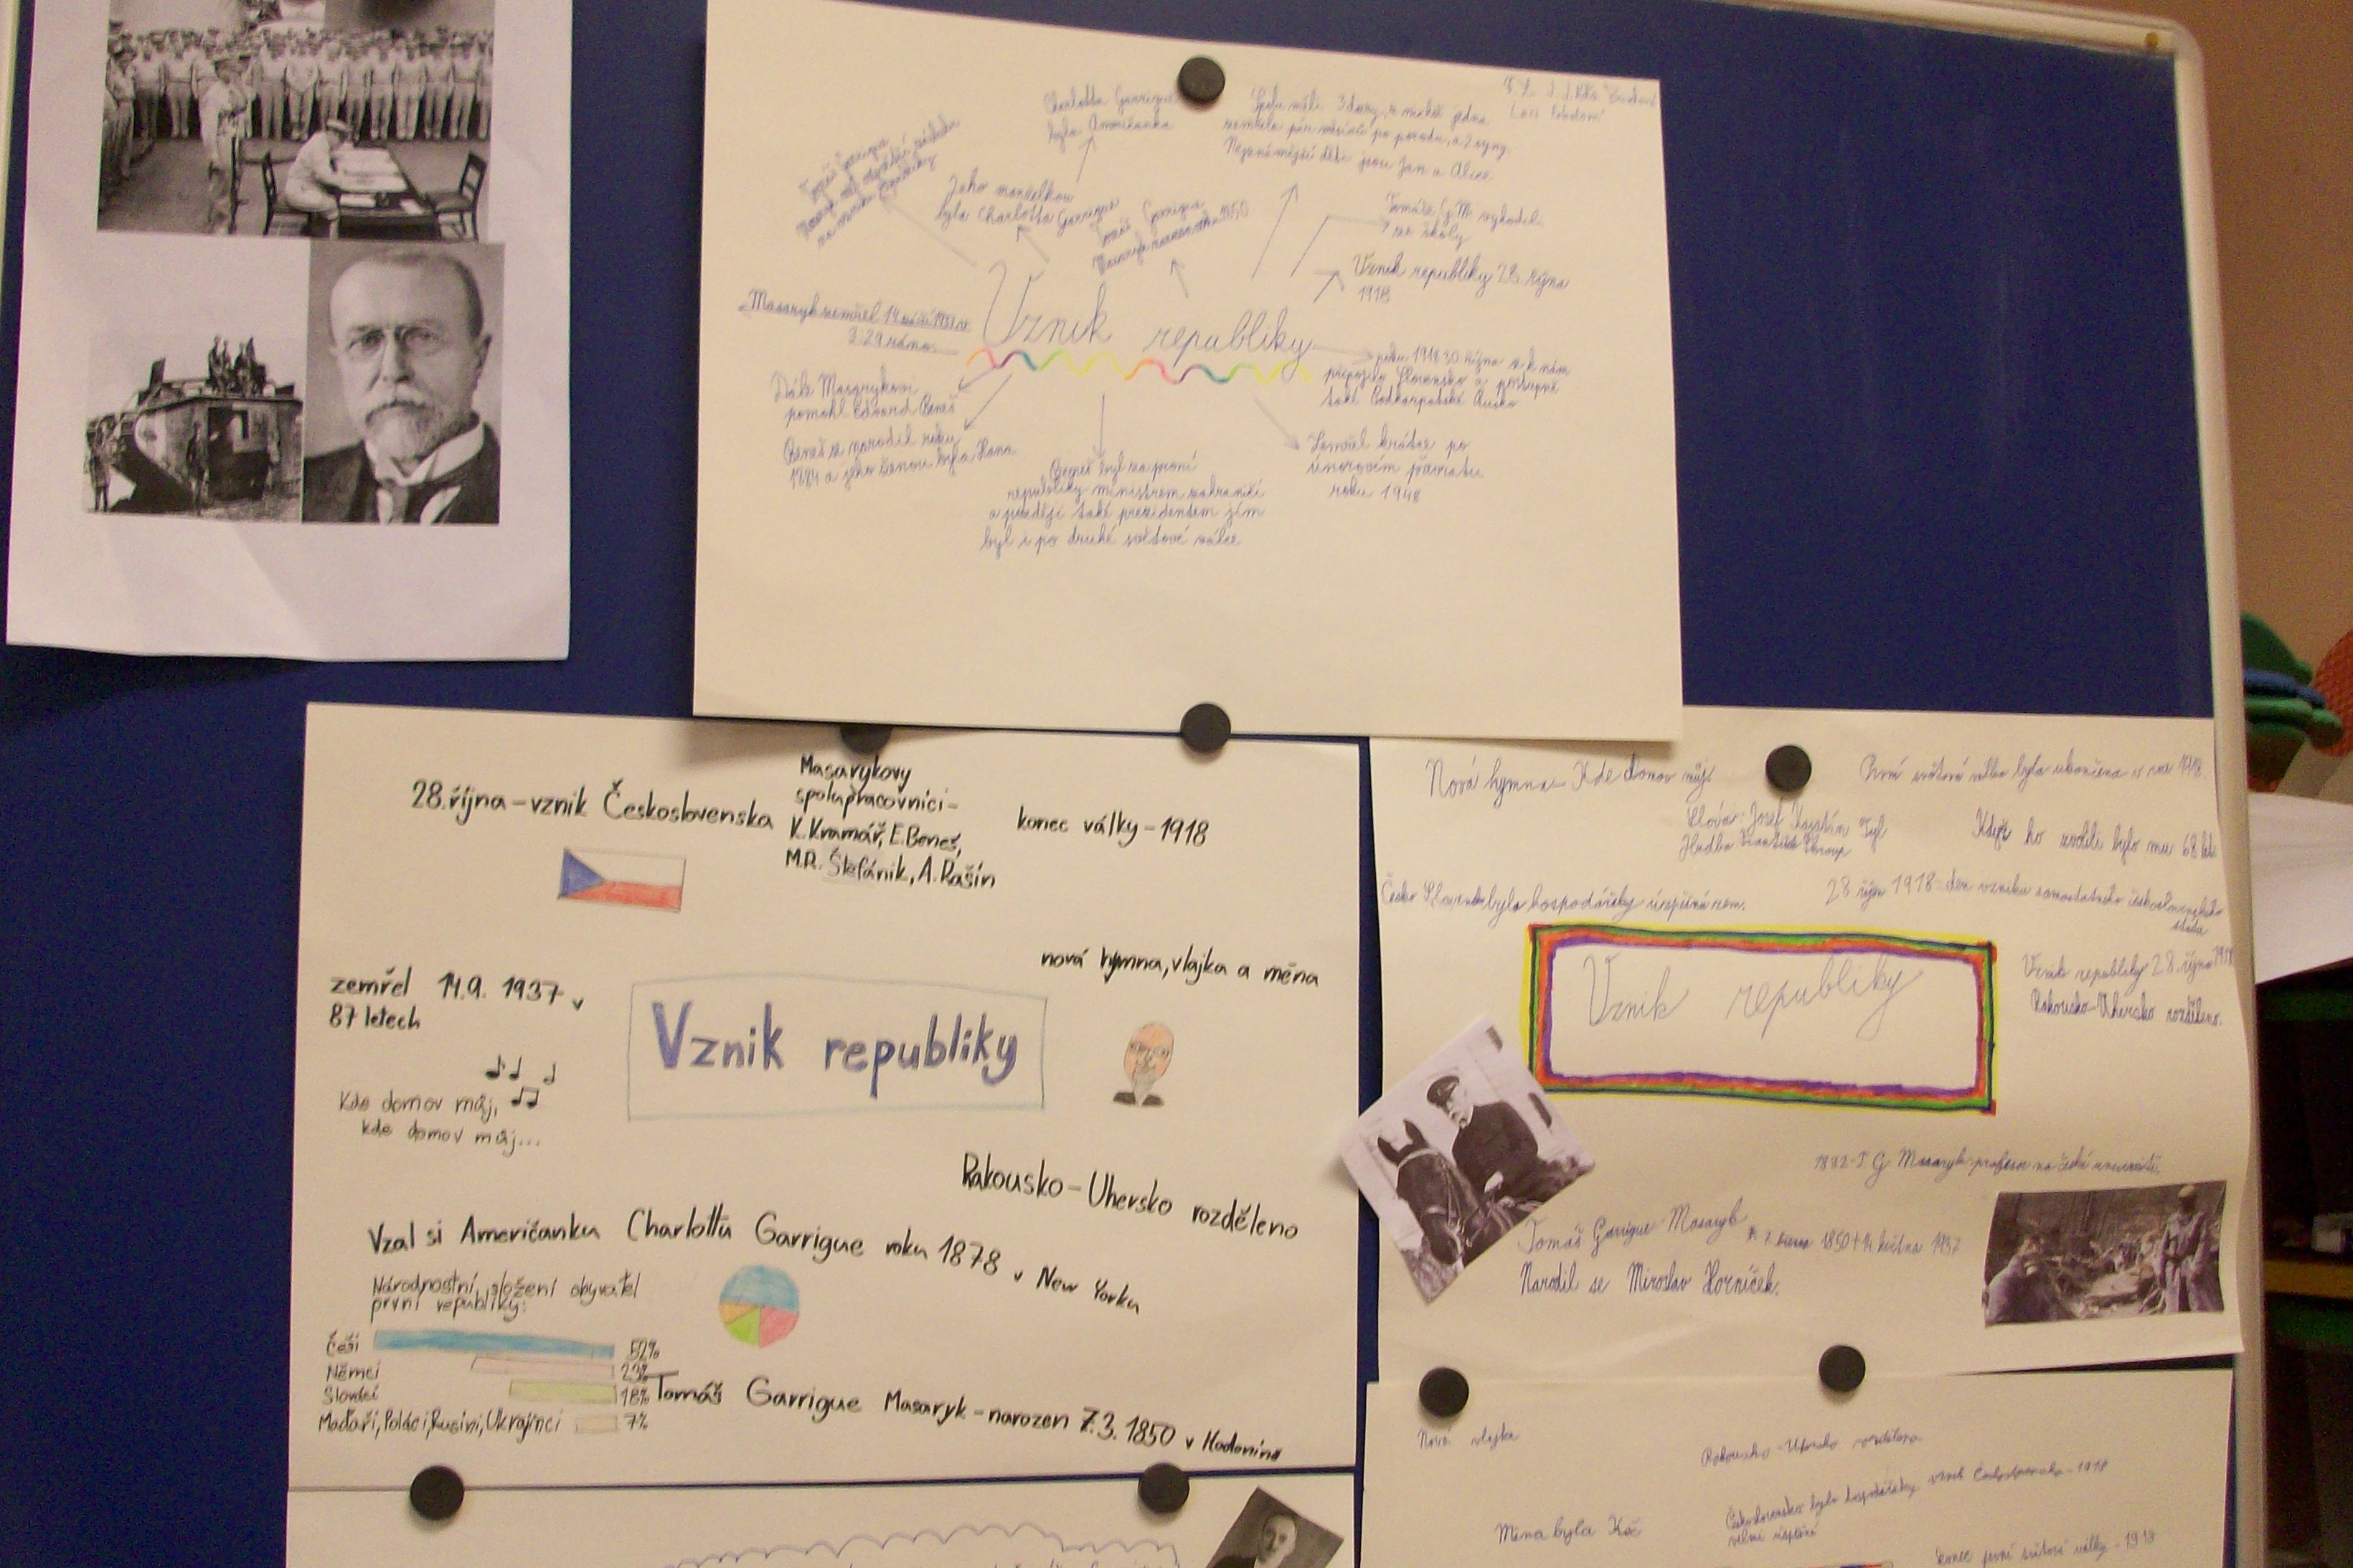 Charlotta Garrigue
byla Američanka
Spolu měli 3 dcery, z nichž jedna
zemřela pár měsíců po porodu, a 2 syny.
Nejznámější děti jsou Jan a Alice
Jeho manželkou
byla Charlotta Garrigue
Tomáš Garrigue
Tomáše G.M. vyhodili
ze školy
Vznik republiky 28. října
1918
Masaryk zemřel 14 září 1937 v
3:29 ráno.
Vznik republiky
roku 1918 30 října se k nám
připojilo Slovensko a postupně
také Podkarpatské Rusko
Dále Masarykovi
pomohl Edvard Beneš
Beneš se narodil roku
1884 a jeho ženou byla Hana
Zemřel krátce po
únorovém převratu
roku 1948
Beneš byl za první
republiky ministrem zahraničí
a později také prezidentem jím
byl i po druhé světové válce
28.října-vznik Československa
Masarykovy
spolupracovníci-
K.Kramář, E.Beneš,
M.R. Štefánik, A.Rašín
konec války-1918
nová hymna, vlajka a měna
zemřel 14.9. 1937 v
87 letech
Vznik republiky
Kde domov můj,
kde domov můj...
Rakousko-Uhersko rozděleno
Vzal si Američanku Charlottu Garrigue roku 1878 v New Yorku
Národnostní složení obyvatel
první republiky:
Češi 52%
Němci 23%
Slováci 18%
Maďaři, Poláci, Rusíni, Ukrajinci 7%
Tomáš Garrigue Masaryk-narozen 7.3. 1850 v Hodoníně
Nová hymna- Kde domov můj.
První světová válka byla ukončena v roce 1918.
Slova- Josef Kajetán Tyl
Hudba František Škroup
Když ho zvolili bylo mu 68 let
byla hospodářsky úspěšná zem.
28 říjn 1918-den vzniku samostatného československého
státu
Vznik republiky
Vznik republiky 28. října 1918
Rakousko-Uhersko rozděleno.
1882-T. G. Masaryk-profesor na české univerzitě.
Tomáš Garrigue Masaryk 1850 + 14 května 1937
Narodil se Miroslav Horníček.
Nová vlajka
Rakousko-Uhersko rozděleno
vznik Československa-1918
Československo bylo hospodářsky
velmi úspěšné
Měna byla Kč
konec první světové války-1918